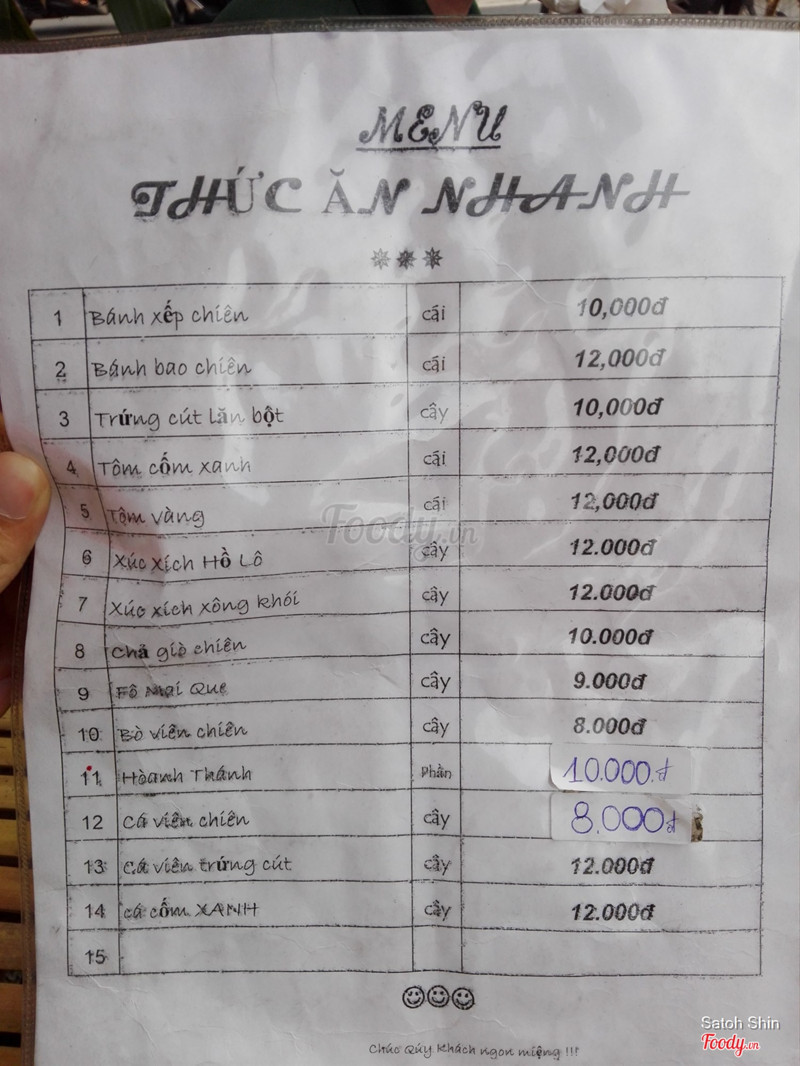 MENU
THỨC ĂN NHANH
1 Bánh xếp chiên cái 10,000đ
2 Bánh bao chiên cái 12,000đ
3 Trứng cút lăn bột cây 10,000đ
4 Tôm cốm xanh cái 12,000đ
5 Tôm vàng cái 12,000đ
6 Xúc xích Hồ Lô cây 12.000đ
7 Xúc xích xông khói cây 12.000đ
8 Chả giò chiên cây 10.000đ
9 Fô Mai Que cây 9.000đ
10 Bò viên chiên cây 8.000đ
11 Hòanh Thánh Phần 10.000đ
12 Cá viên chiên cây 8.000đ
13 Cá viên trứng cút cây 12.000đ
14 cá cốm XANH cây 12.000đ
15
Chúc Qúy khách ngon miệng !!!
Foody.vn
Satoh Shin
Foody.vn